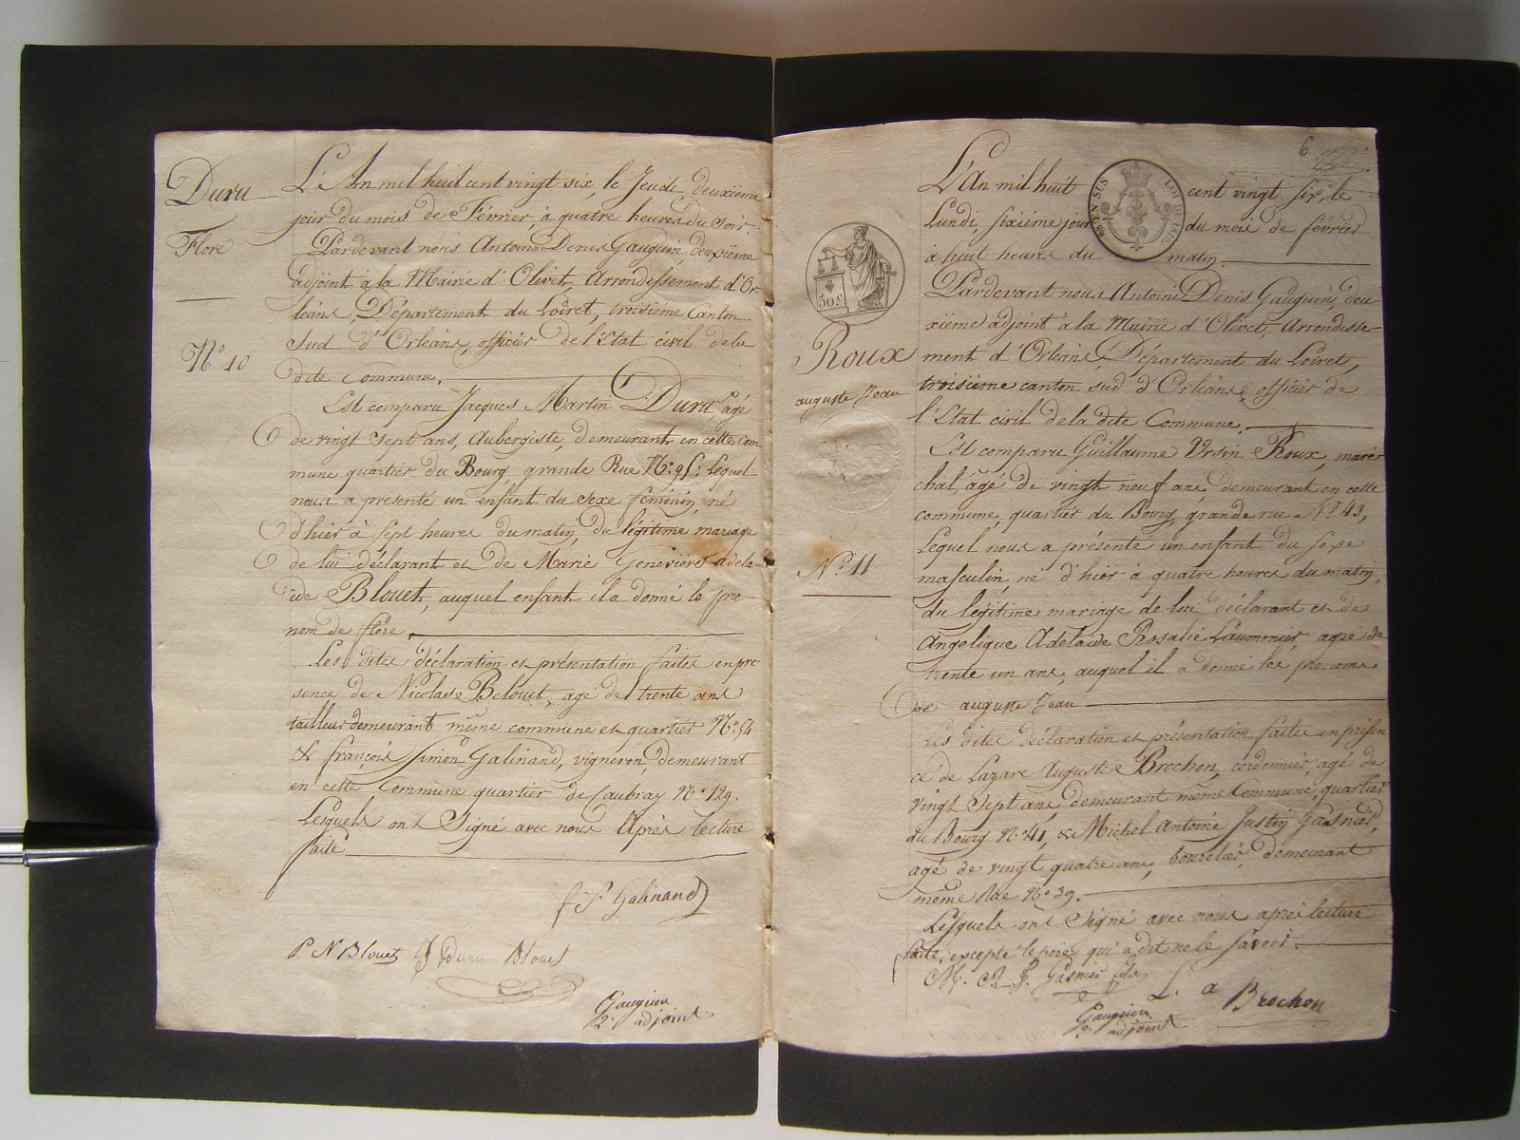 Duru
Flore
N.o 10
L'An mil huit cent vingt six, le Jeudi deuxieme
jour du mois de Février, à quatre heures du soir.
Pardevant nous Antoine Denis Gauguin, deuxieme
adjoint à la Mairie d'Olivet, arrondissement d'Or
léans, Département du Loiret, troisième Canton
sud d'Orléans, officier de l'Etat civil de la
dite commune.
Est comparu Jacques Martin Duru, agé
de vingt sept ans, Aubergiste, demeurant en cette com
mune quartier du Bourg grande Rue lequel
nous a presenté un enfant du sexe féminin, né
d'hier à sept heures du matin, du légitime mariage
de lui déclarant et de Marie Genevieve adela
ide Blouet, auquel enfant il a donné le pre
nom de flore.
Les dites déclaration et présentation faites en pre
sence de Nicolas Blouet, agé de trente ans
tailleur demeurant même commune et quartier N.o 54
& françois Simon Galinand, vigneron, demeurant
en cette Commune quartier de Caubray N.o 129.
Lesquels ont Signé avec nous Après lecture
faite
f S Galinand
P N Blouet J Duru Blouet
Gauguin
2.e adjoint
6
L'An mil huit cent vingt six, le
Lundi, sixième jour du mois de février
à huit heures du matin.
Pardevant nous Antoine Denis Gauguin, deu
xième adjoint à la Mairie d'Olivet, Arrondisse
ment d'Orléans, Département du Loiret,
troisième canton sud d'Orléans, officier de
l'Etat civil de la dite Commune.
50 c
Roux
auguste Jean
N.o 11
Est comparu Guillaume Ursin Roux, maré
chal, âgé de vingt neuf ans, demeurant en cette
commune, quartier du Bourg, grande rue N.o 43,
Lequel nous a présenté un enfant du sexe
masculin, né d'hier à quatre heures du matin,
du légitime mariage de lui déclarant et de
Angelique Adelaide Rosalie agée de
trente un ans, auquel il a donné les prenoms
de auguste Jean
Les dites déclaration et présentation faites en présen
ce de Lazare Auguste Brochon, cordonnier, agé de
vingt Sept ans, demeurant même Commune, quartier
du Bourg N.o 41, & Michel Antoine Justin Gasnier,
agé de vingt quatre ans, demeurant
même Rue N.o 39.
Lesquels ont Signé avec nous après lecture
faite, excepté le père qui a dit ne le savoir.
M. A. J. Gasnier fils
L. a Brochon
Gauguin
2.e adjoint